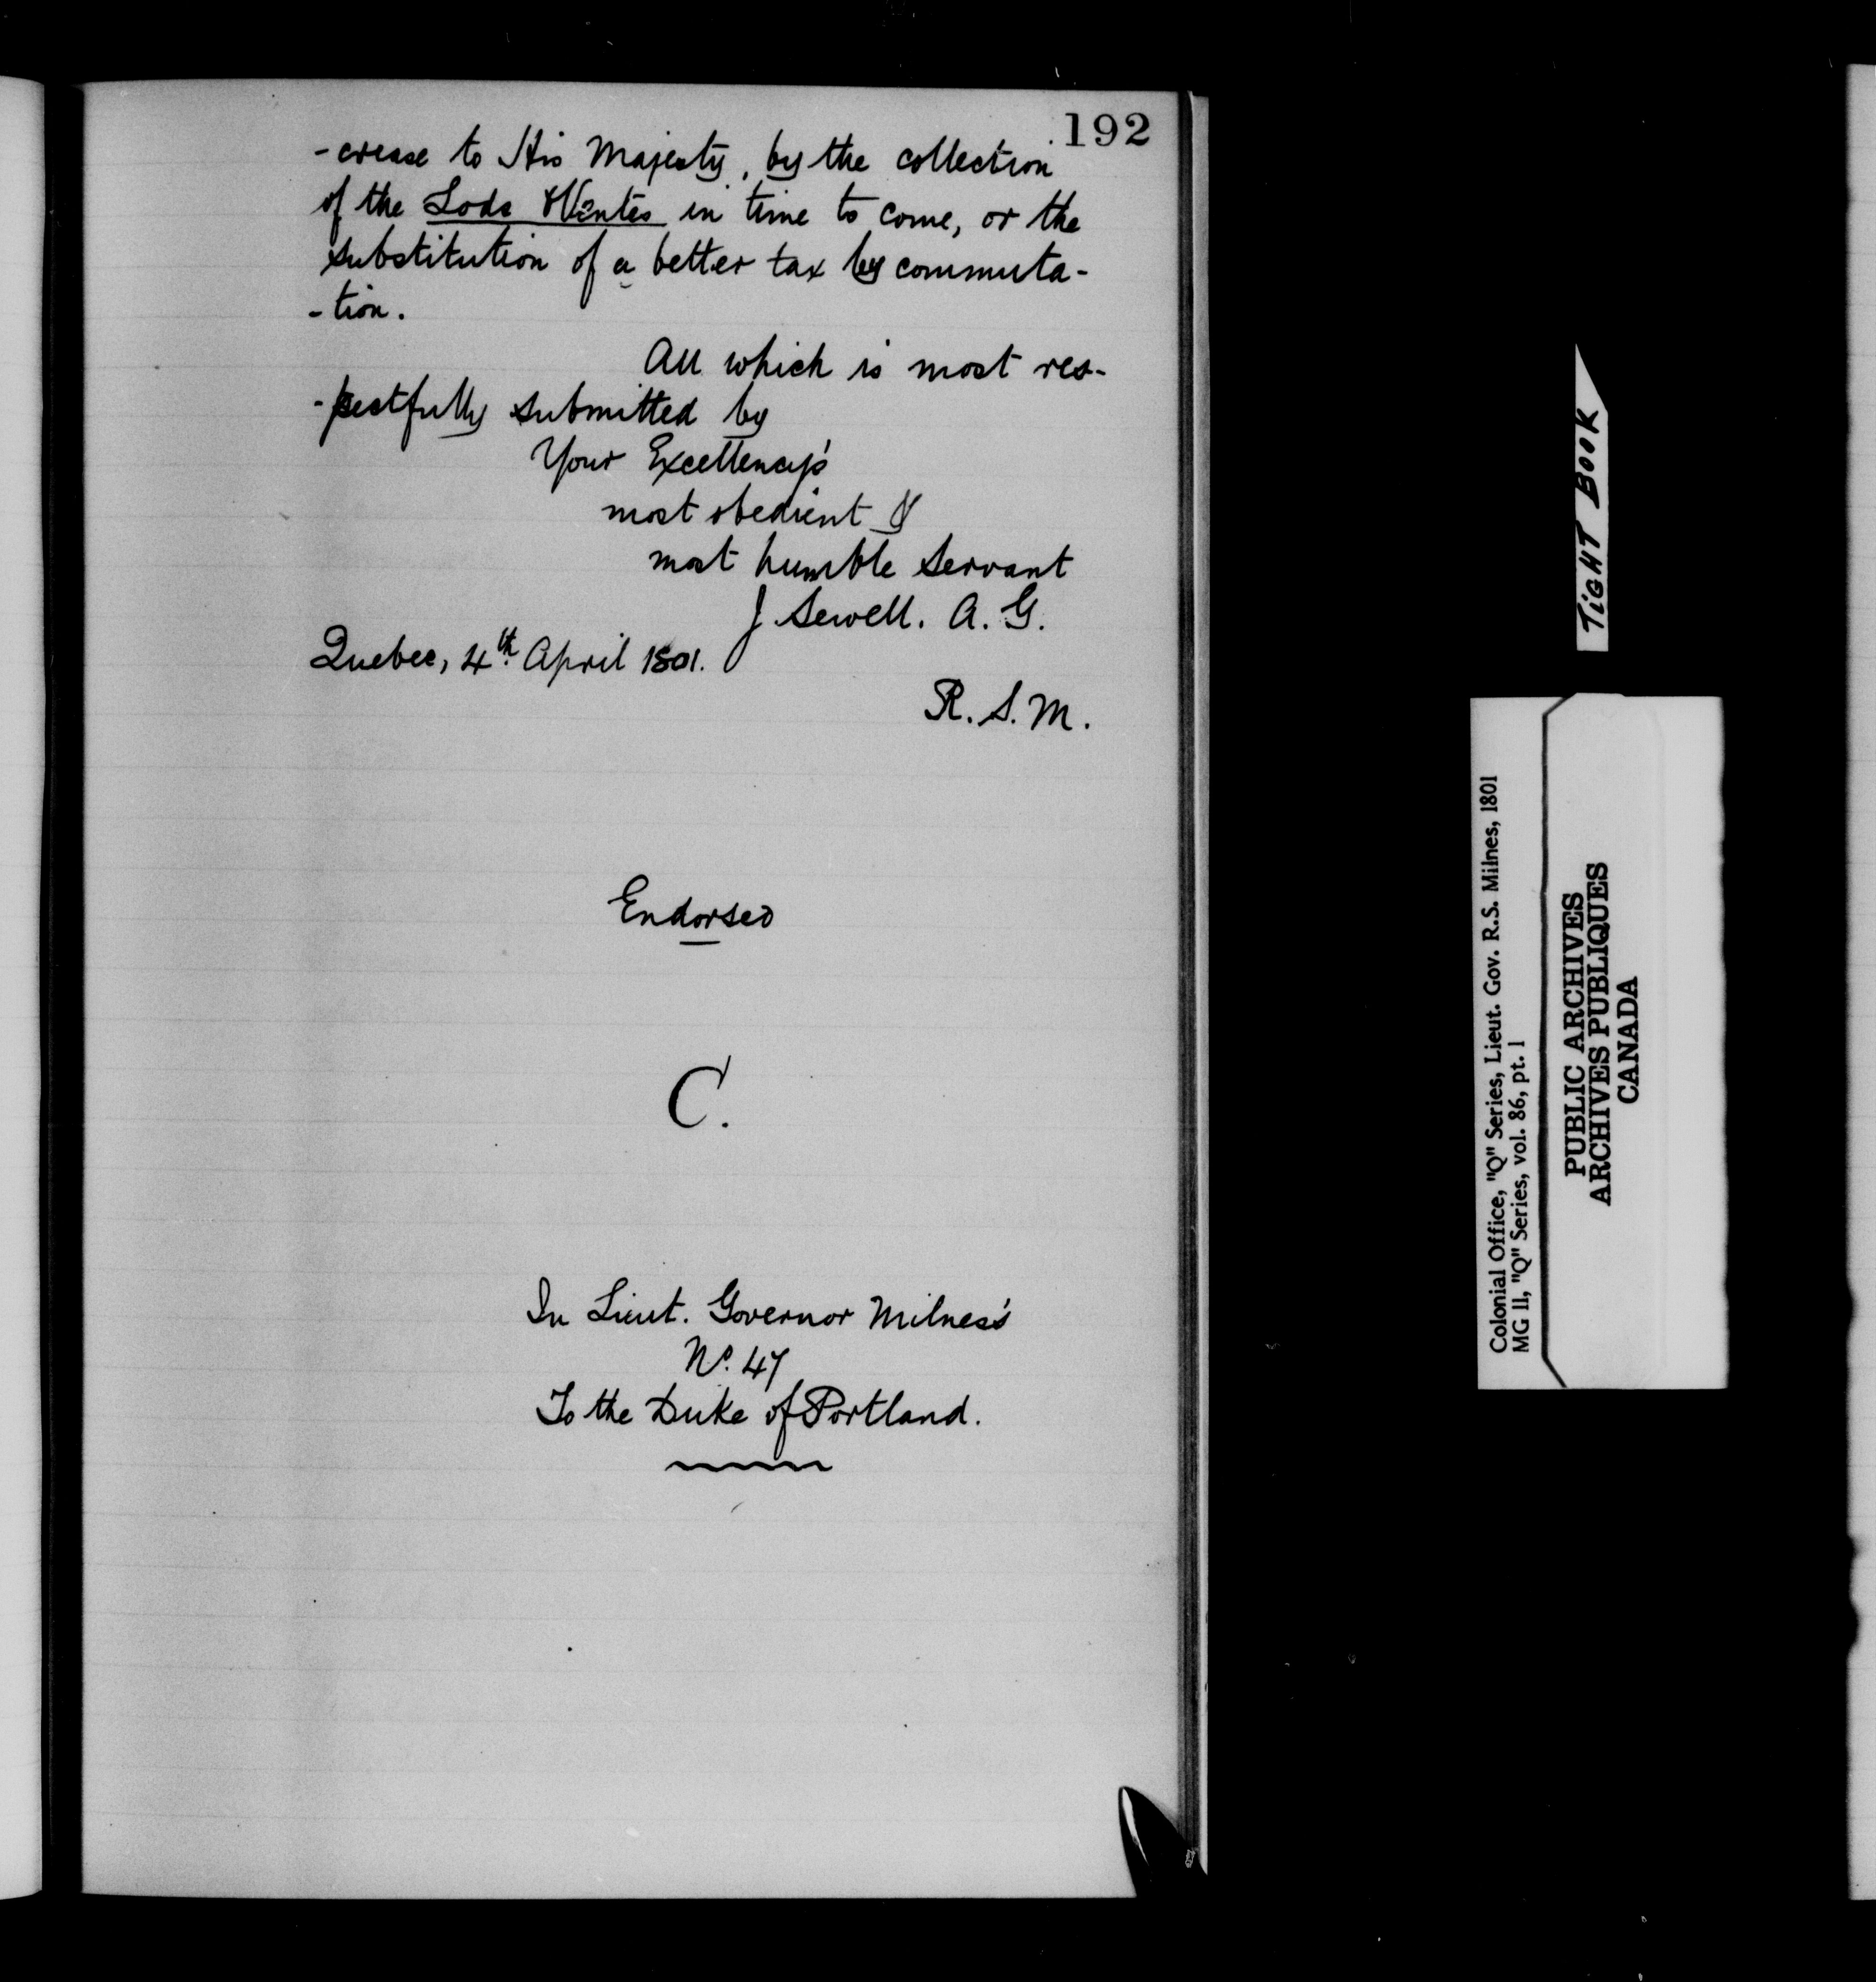 192
-crease to His Majesty, by the collection
of the Lods & Ventes in time to come, or the
substitution of a better tax by commuta-
-tion.
All which is most res-
-pectfully submitted by
Your Excellency's
most obedient &
most humble Servant
J Sewell. A. G.
Quebec, 4th April 1801.
R. S. M.
Endorsed
C.
In Lieut. Governor Milnes's
No. 47
To the Duke of Portland.
TIGHT BOOK
Colonial Office, "Q" Series, Lieut. Gov. R.S. Milnes, 1801
MG 11, "Q" Series, vol. 86, pt. 1
PUBLIC ARCHIVES
ARCHIVES PUBLIQUES
CANADA